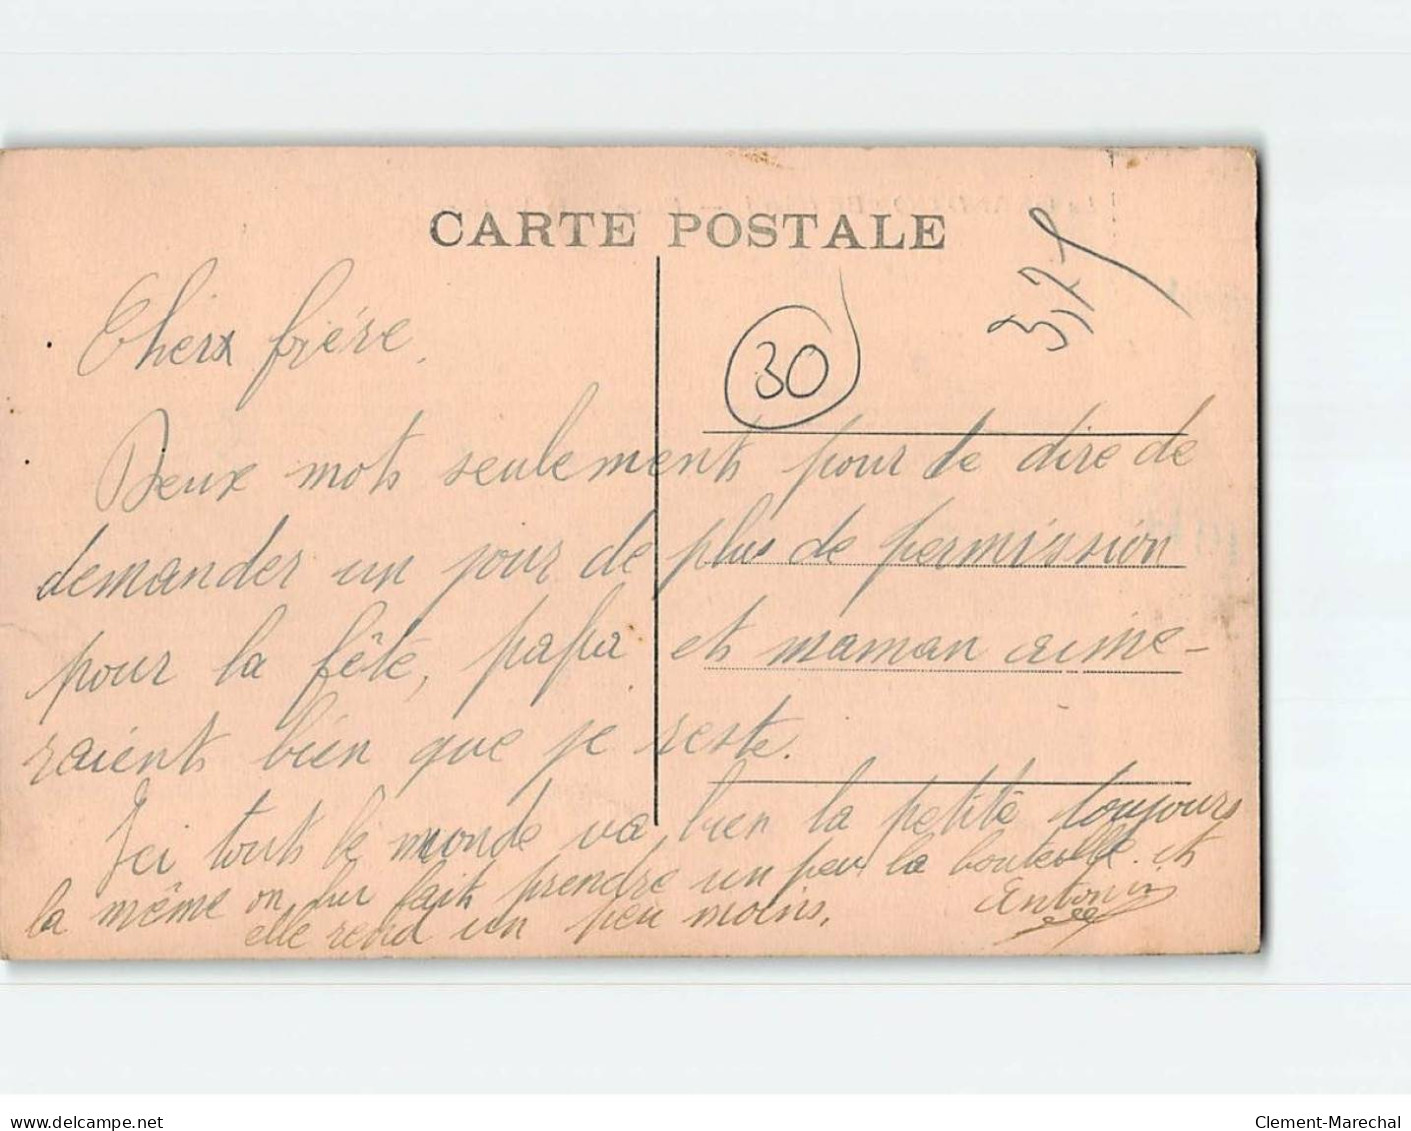 CARTE POSTALE
30
Cherx frère.
Deux mots seulements pour te dire de
demander un jour de plus de permission
pour la fête, papa et maman aime-
raients bien que je reste.
Ici touts le monde va bien la petite toujours
la même on lui fait prendre un peu la bouteille et
elle rend un peu moins.
Antonin
www.delcampe.net
Clement-Marechal